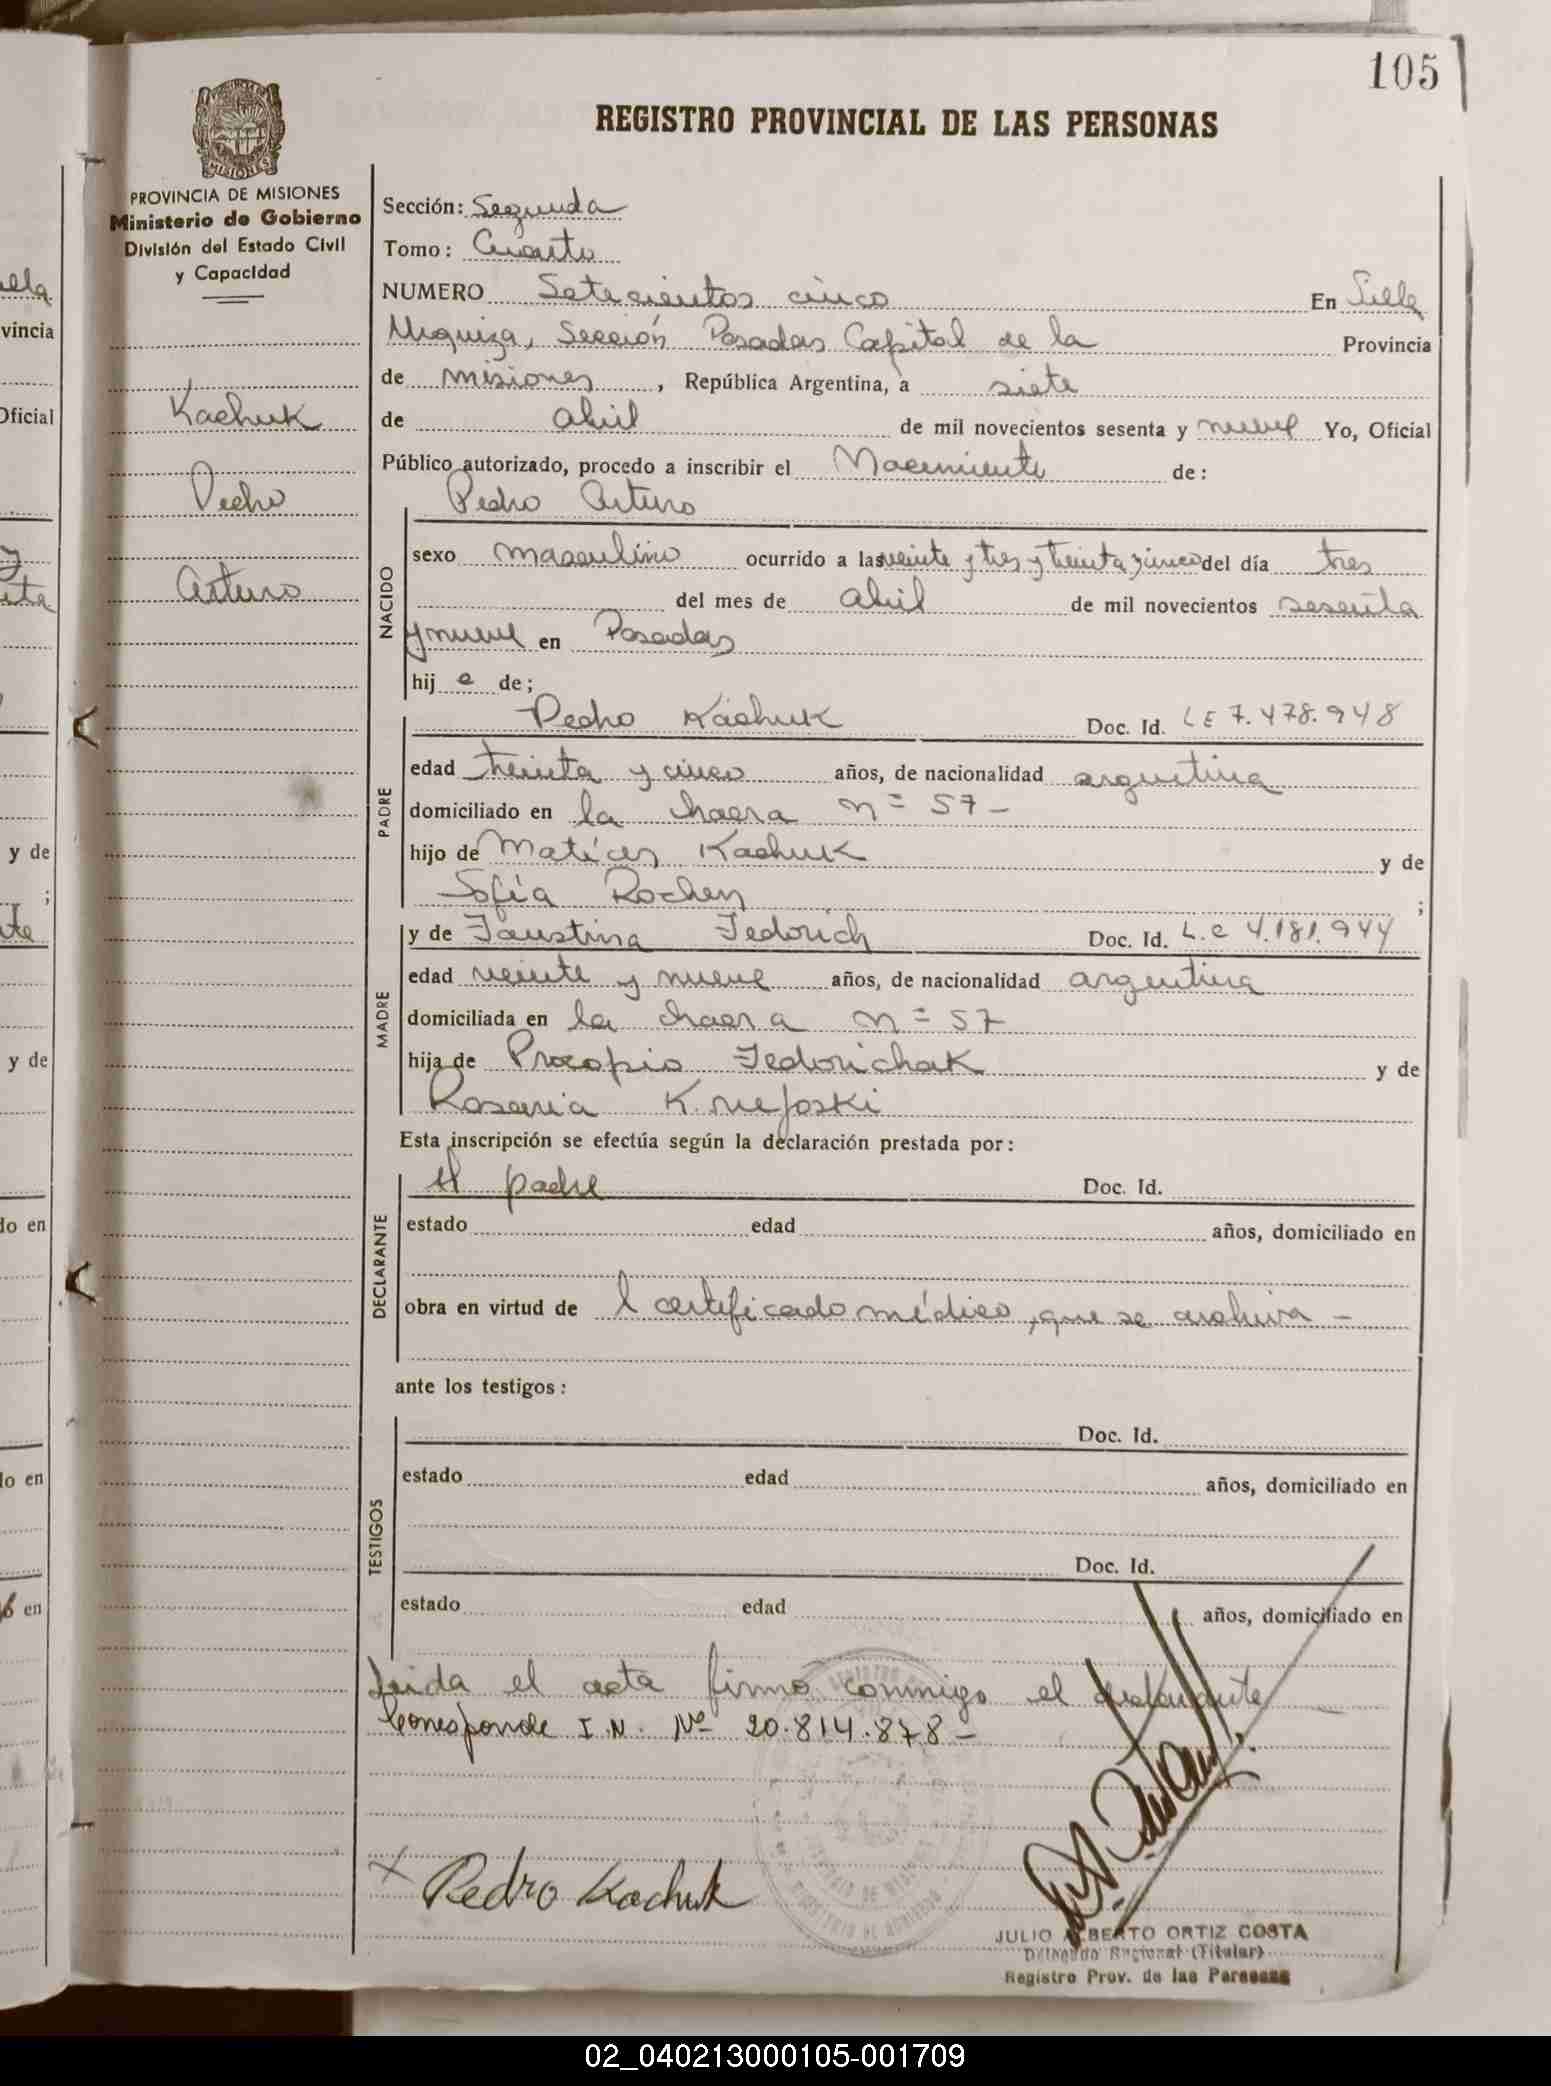 105
REGISTRO PROVINCIAL DE LAS PERSONAS
PROVINCIA DE MISIONES
MISIONES
Ministerio de Gobierno
División del Estado Civil
y Capacidad
Kachuk
Pedro
Arturo
Sección: Segunda
Tomo: Cuarto
NUMERO Setecientos cinco En Villa
Urquiza, Sección Posadas Capital de la Provincia
de misiones, República Argentina, a siete
de abril de mil novecientos sesenta y nueve Yo, Oficial
Público autorizado, procedo a inscribir el Nacimiento de:
NACIDO
Pedro Arturo
sexo masculino ocurrido a las veinte y tres y treinta y cinco del día tres
del mes de abril de mil novecientos sesenta
y nueve en Posadas
hij o de;
PADRE
Pedro Kachuk Doc. Id. LE 7.478.948
edad treinta y cinco años, de nacionalidad argentina
domiciliado en la chacra n= 57 -
hijo de Matías Kachuk y de
Sofía Rochen ;
MADRE
y de Faustina Fedorich Doc. Id. L.C 4.181.944
edad veinte y nueve años, de nacionalidad argentina
domiciliada en la chacra n= 57
hija de Procopio Fedorichak y de
Rosaria
Esta inscripción se efectúa según la declaración prestada por:
DECLARANTE
el padre Doc. Id.
estado edad años, domiciliado en
obra en virtud de l certificado médico, que se archiva -
ante los testigos:
TESTIGOS
Doc. Id.
estado edad años, domiciliado en
Doc. Id.
estado edad años, domiciliado en
Leida el acta firma conmigo el declarante
Corresponde I.N. Nº 20.814.878-
Pedro Kachuk
JULIO ALBERTO ORTIZ COSTA
Delegado Regional (Titular)
Registro Prov. de las Personas
ella
vincia
Oficial
y
y de
;
y de
do en
do en
en
02_040213000105-001709